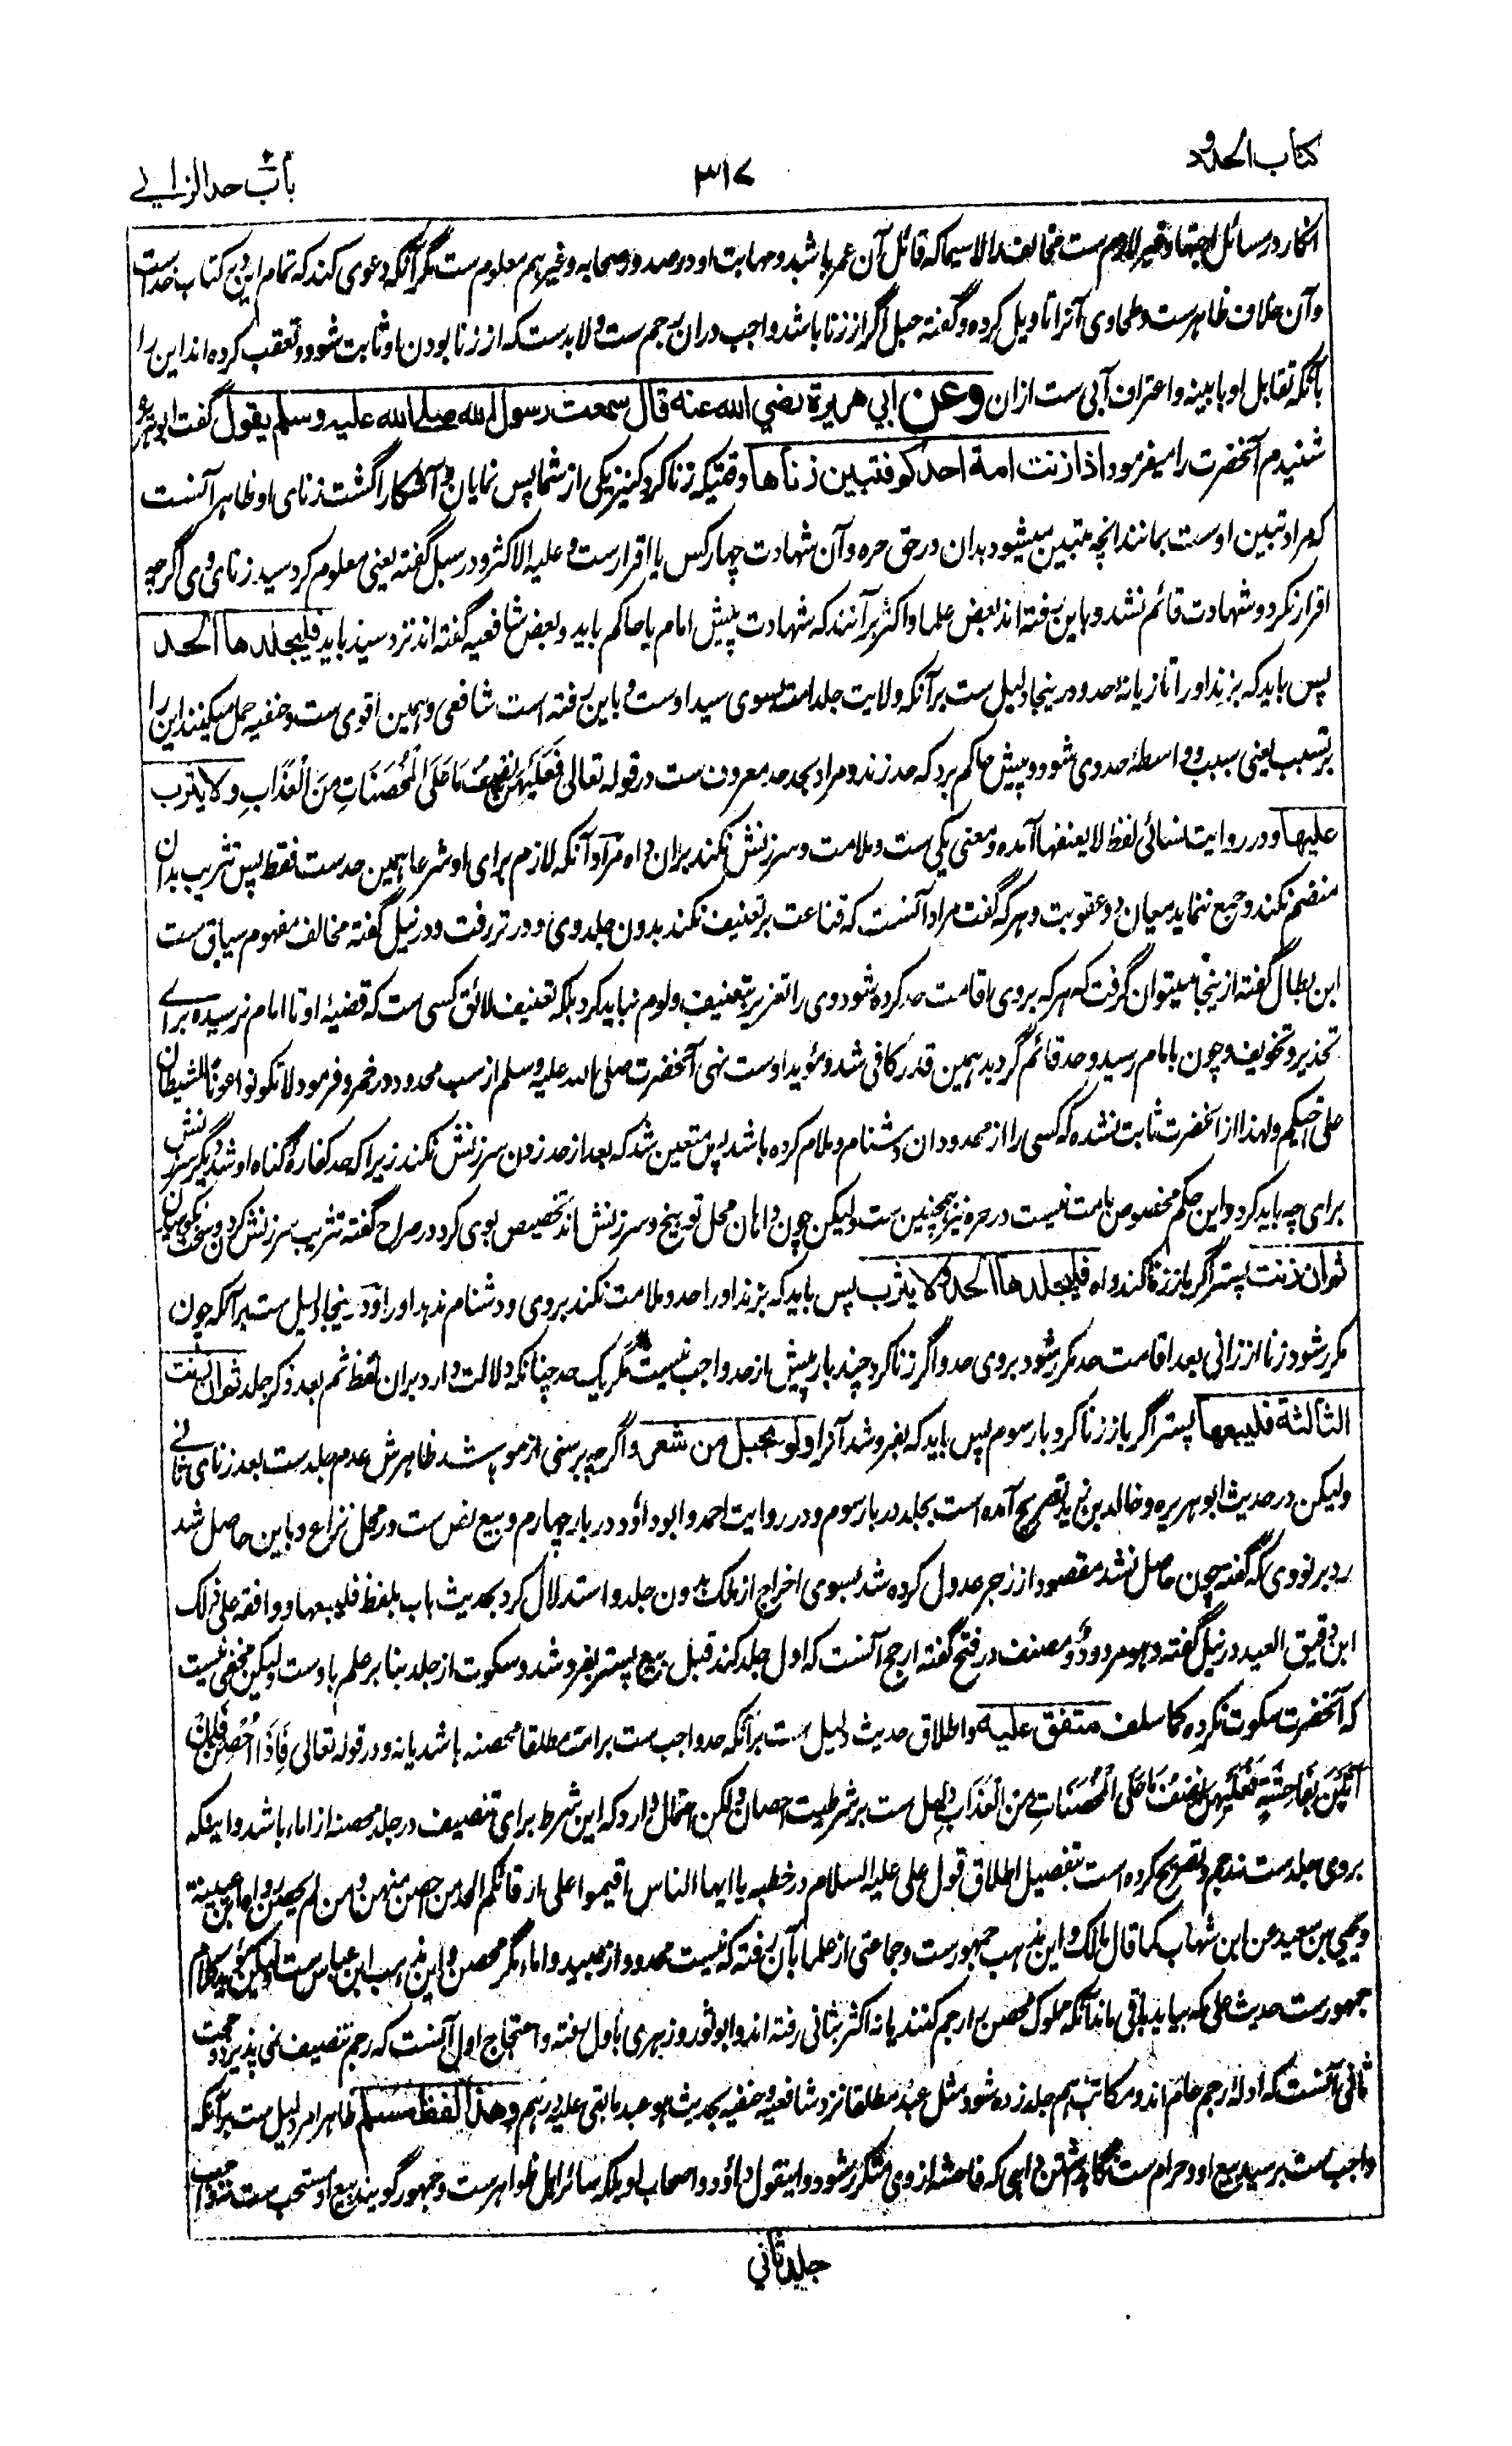 کتاب الحدود
۳۱۷
باب حد الزانی
انکار در مسائل اجتهاد غیر لازم ست مخالف را لاسیما که قائل آن عمر باشد و مهابت او در صدور صحابه و غیرهم معلوم ست مگر آنکه دعوی کند که تمام این در کتاب خداست
و آن خلاف ظاهرست و طحاوی آنرا تاویل کرده و گفته حبل اگر از زنا باشد واجب دران رجم ست و لابدست که از زنا بودن او ثابت شود و تعقب کرده اند این را
بآنکه تقابل او با بینه و اعتراف آبی ست ازان وعن ابي هريرة رضي الله عنه قال سمعت رسول الله صلى الله عليه وسلم يقول گفت ابوهریره
شنیدم آنحضرت را میفرمود اذا زنت امة احدكم فتبين زناها وقتیکه زنا کرد کنیز یکی از شما پس نمایان و آشکارا گشت زنای او ظاهر آنست
که مراد تبین اوست بمانند انچه متبین میشود بدان در حق حره و آن شهادت چهار کس یا اقرارست و علیه الاکثر و در سبل گفته یعنی معلوم کرد سید زنای وی اگرچه
اقرار نکرد و شهادت قائم نشد و باین رفته اند بعض علما و اکثر برآنند که شهادت پیش امام یا حاکم باید و بعض شافعیه گفته اند نزد سید باید فليجلدها الحد
پس باید که بزند او را تازیانهٔ حد و درینجا دلیل ست برآنکه ولایت جلد امة بسوی سید اوست و باین رفته است شافعی و همین اقوی ست و حنفیه حمل میکنند این را
بر تسبب یعنی سبب و واسطهٔ حد وی شود و پیش حاکم برد که حد زند و مراد بحد حد معروف ست در قوله تعالی فَعَلَيْهِنَّ نِصْفُ مَا عَلَى الْمُحْصَنَاتِ مِنَ الْعَذَابِ ولا يثرب
عليها و در روایت نسائی لفظ لا یعنفها آمده و معنی یکی ست و ملامت و سرزنش نکند بران داه مراد آنکه لازم برای او شرعا همین حدست فقط پس تثریب بدان
منضم نکند و جمع ننماید میان دو عقوبت و هر که گفت مراد آنست که قناعت بر تعنیف نکند بدون جلد وی دورتر رفت و در نیل گفته مخالف مفهوم سیاق ست
ابن بطال گفته ازینجا میتوان گرفت که هر که بروی اقامت حد کرده شود وی را تعزیر بتعنیف و لوم نباید کرد بلکه تعنیف لائق کسی ست که قضیهٔ او تا امام نرسیده برای
تحذیر و تخویف و چون بامام رسید و حد قائم گردید همین قدر کافی شد و مؤید اوست نهی آنحضرت صلی الله علیه وسلم از سب محدود در خمر و فرمود لا تکونوا عونا للشیطان
علی اخیکم و لهذا از آنحضرت ثابت نشده که کسی را از محدودان دشنام و ملام کرده باشد پس متعین شد که بعد از حد زدن سرزنش نکند زیرا که حد کفارهٔ گناه او شد دیگر سرزنش
برای چه باید کرد و این حکم مخصوص بامت نیست در حره نیز همچنین ست ولیکن چون داهان محل توبیخ و سرزنش اند تخصیص بوی کرد در صراح گفته تثریب سرزنش کردن و سخت نکوهیدن
ثم ان زنت پستر اگر باز زنا کند داه فليجلدها الحد ولا يثرب پس باید که بزند او را حد و ملامت نکند بروی و دشنام ندهد او را و درینجا دلیل ست برآنکه چون
مکرر شود زنا از زانی بعد اقامت حد مکرر شود بروی حد و اگر زنا کرد چند بار پیش از حد واجب نیست مگر یک حد چنانکه دلالت دارد بران لفظ ثم بعد ذکر جلد ثم ان زنت
الثالثة فليبعها پستر اگر باز زنا کرد بار سوم پس باید که بفروشد آنرا ولو بحبل من شعر و اگرچه برسنی از مو باشد ظاهرش عدم جلدست بعد زنای ثانی
ولیکن در حدیث ابوهریره و خالد بن زید تصریح آمده است بجلد در بار سوم و در روایت احمد و ابوداؤد در بار چهارم و بیع نص ست در محل نزاع و باین حاصل شد
رد بر نووی که گفته چون حاصل نشد مقصود از زجر عدول کرده شد بسوی اخراج از ملک بدون جلد و استدلال کرد بحدیث باب بلفظ فلیبعها و وافقه علی ذلک
ابن دقیق العید در نیل گفته و هو مردود و مصنف در فتح گفته ارجح آنست که اول جلد کند قبل بیع پستر بفروشد و سکوت از جلد بنا بر علم باوست ولیکن مخفی نیست
که آنحضرت سکوت نکرده کما سلف متفق عليه و اطلاق حدیث دلیل ست برآنکه حد واجب ست بر امة مطلقا محصنه باشد یا نه و در قوله تعالی فَإِذَا أُحْصِنَّ فَإِنْ
أَتَيْنَ بِفَاحِشَةٍ فَعَلَيْهِنَّ نِصْفُ مَا عَلَى الْمُحْصَنَاتِ مِنَ الْعَذَابِ دلیل ست بر شرطیت احصان ولکن احتمال دارد که این شرط برای تنصیف در جلد محصنه از اماء باشد و اینکه
بروی جلدست نه رجم و تصریح کرده است بتفصیل اطلاق قول علی علیه السلام در خطبه یا ایها الناس اقیموا علی ارقائکم الحد من احصن منهن و من لم یحصن رواه ابن عیینة
و یحیی بن سعید عن ابن شهاب کما قال مالک و این مذهب جمهورست و جماعتی از علما بآن رفته که نیست حد و از عبید و اماء مگر محصن و این مذهب ابن عباس ست لیکن مؤید کلام
جمهورست حدیث علی که بیاید باقی ماند آنکه مملوک محصن را رجم کنند یا نه اکثر بثانی رفته اند و ابوثور و زهری باول رفته و احتجاج اول آنست که رجم تنصیف نمی پذیرد و حجت
ثانی آنست که ادلهٔ رجم عام اند و مکاتب هم جلد زده شود مثل عبد مطلقا نزد شافعیه و حنفیه بحدیث هو عبد ما بقی علیه درهم وهذا لفظ مسلم ظاهر امر دلیل ست برآنکه
واجب ست بر سید بیع او و حرام ست نگاهداشتن داهی که فاحشه از وی متکرر شود و اینقول داؤد و اصحاب او بلکه سائر اهل ظواهرست و جمهور گویند بیع او مستحب ست نه واجب
جلد ثانی